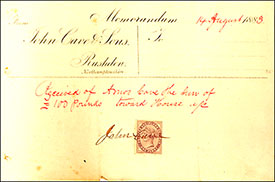 Memorandum
14 August 1883
John Cave & Sons,
To
Rushden,
Northamptonshire
Received of Amos Cave the sum of
£100 Pounds toward House
John Cave